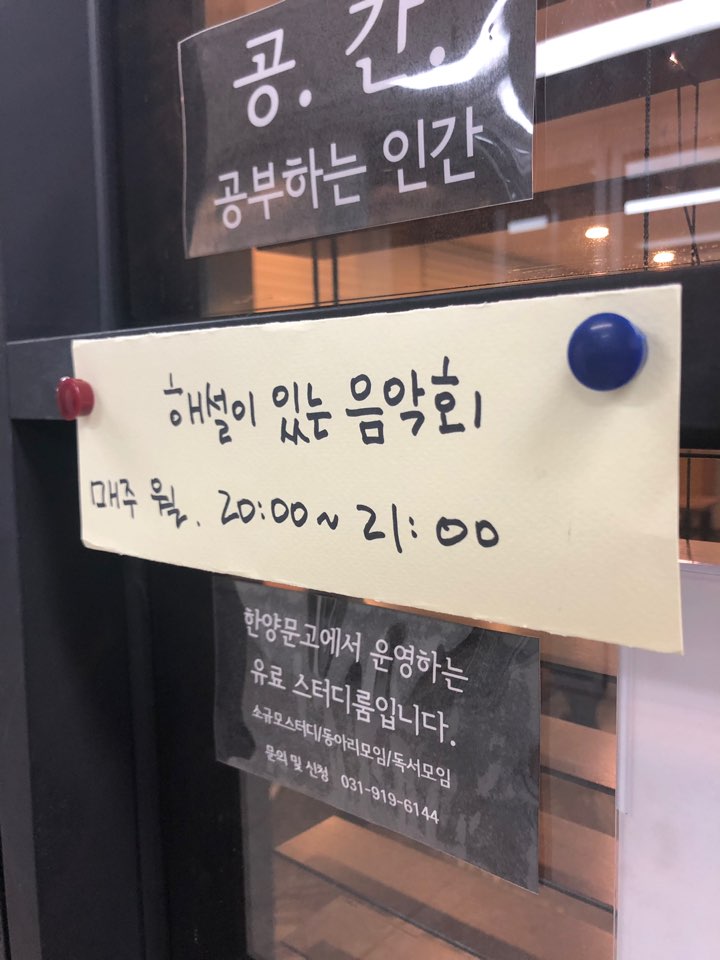 공. 간.
공부하는 인간
해설이 있는 음악회
매주 월. 20:00~21:00
한양문고에서 운영하는
유료 스터디룸입니다.
소규모스터디/동아리모임/독서모임
문의 및 신청 031-919-6144